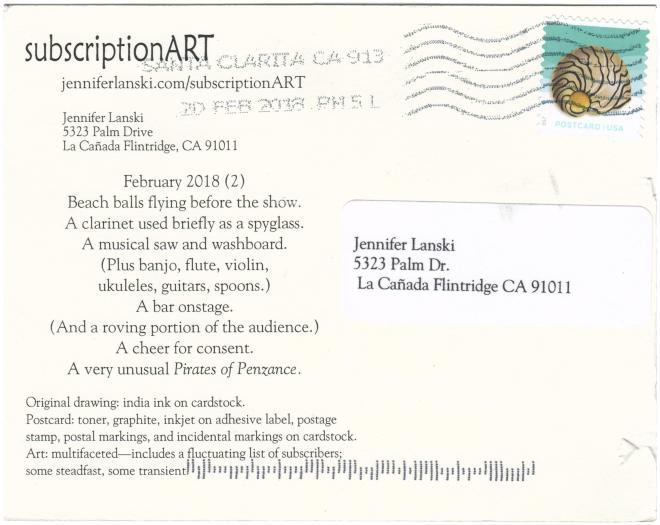 subscriptionART
SANTA CLARITA CA 913
jenniferlanski.com/subscriptionART
20 FEB 2018 PM 5 L
POSTCARD | USA
Jennifer Lanski
5323 Palm Drive
La Cañada Flintridge, CA 91011
February 2018 (2)
Beach balls flying before the show.
A clarinet used briefly as a spyglass.
A musical saw and washboard.
(Plus banjo, flute, violin,
ukuleles, guitars, spoons.)
A bar onstage.
(And a roving portion of the audience.)
A cheer for consent.
A very unusual Pirates of Penzance.
Jennifer Lanski
5323 Palm Dr.
La Cañada Flintridge CA 91011
Original drawing: india ink on cardstock.
Postcard: toner, graphite, inkjet on adhesive label, postage
stamp, postal markings, and incidental markings on cardstock.
Art: multifaceted—includes a fluctuating list of subscribers;
some steadfast, some transient.